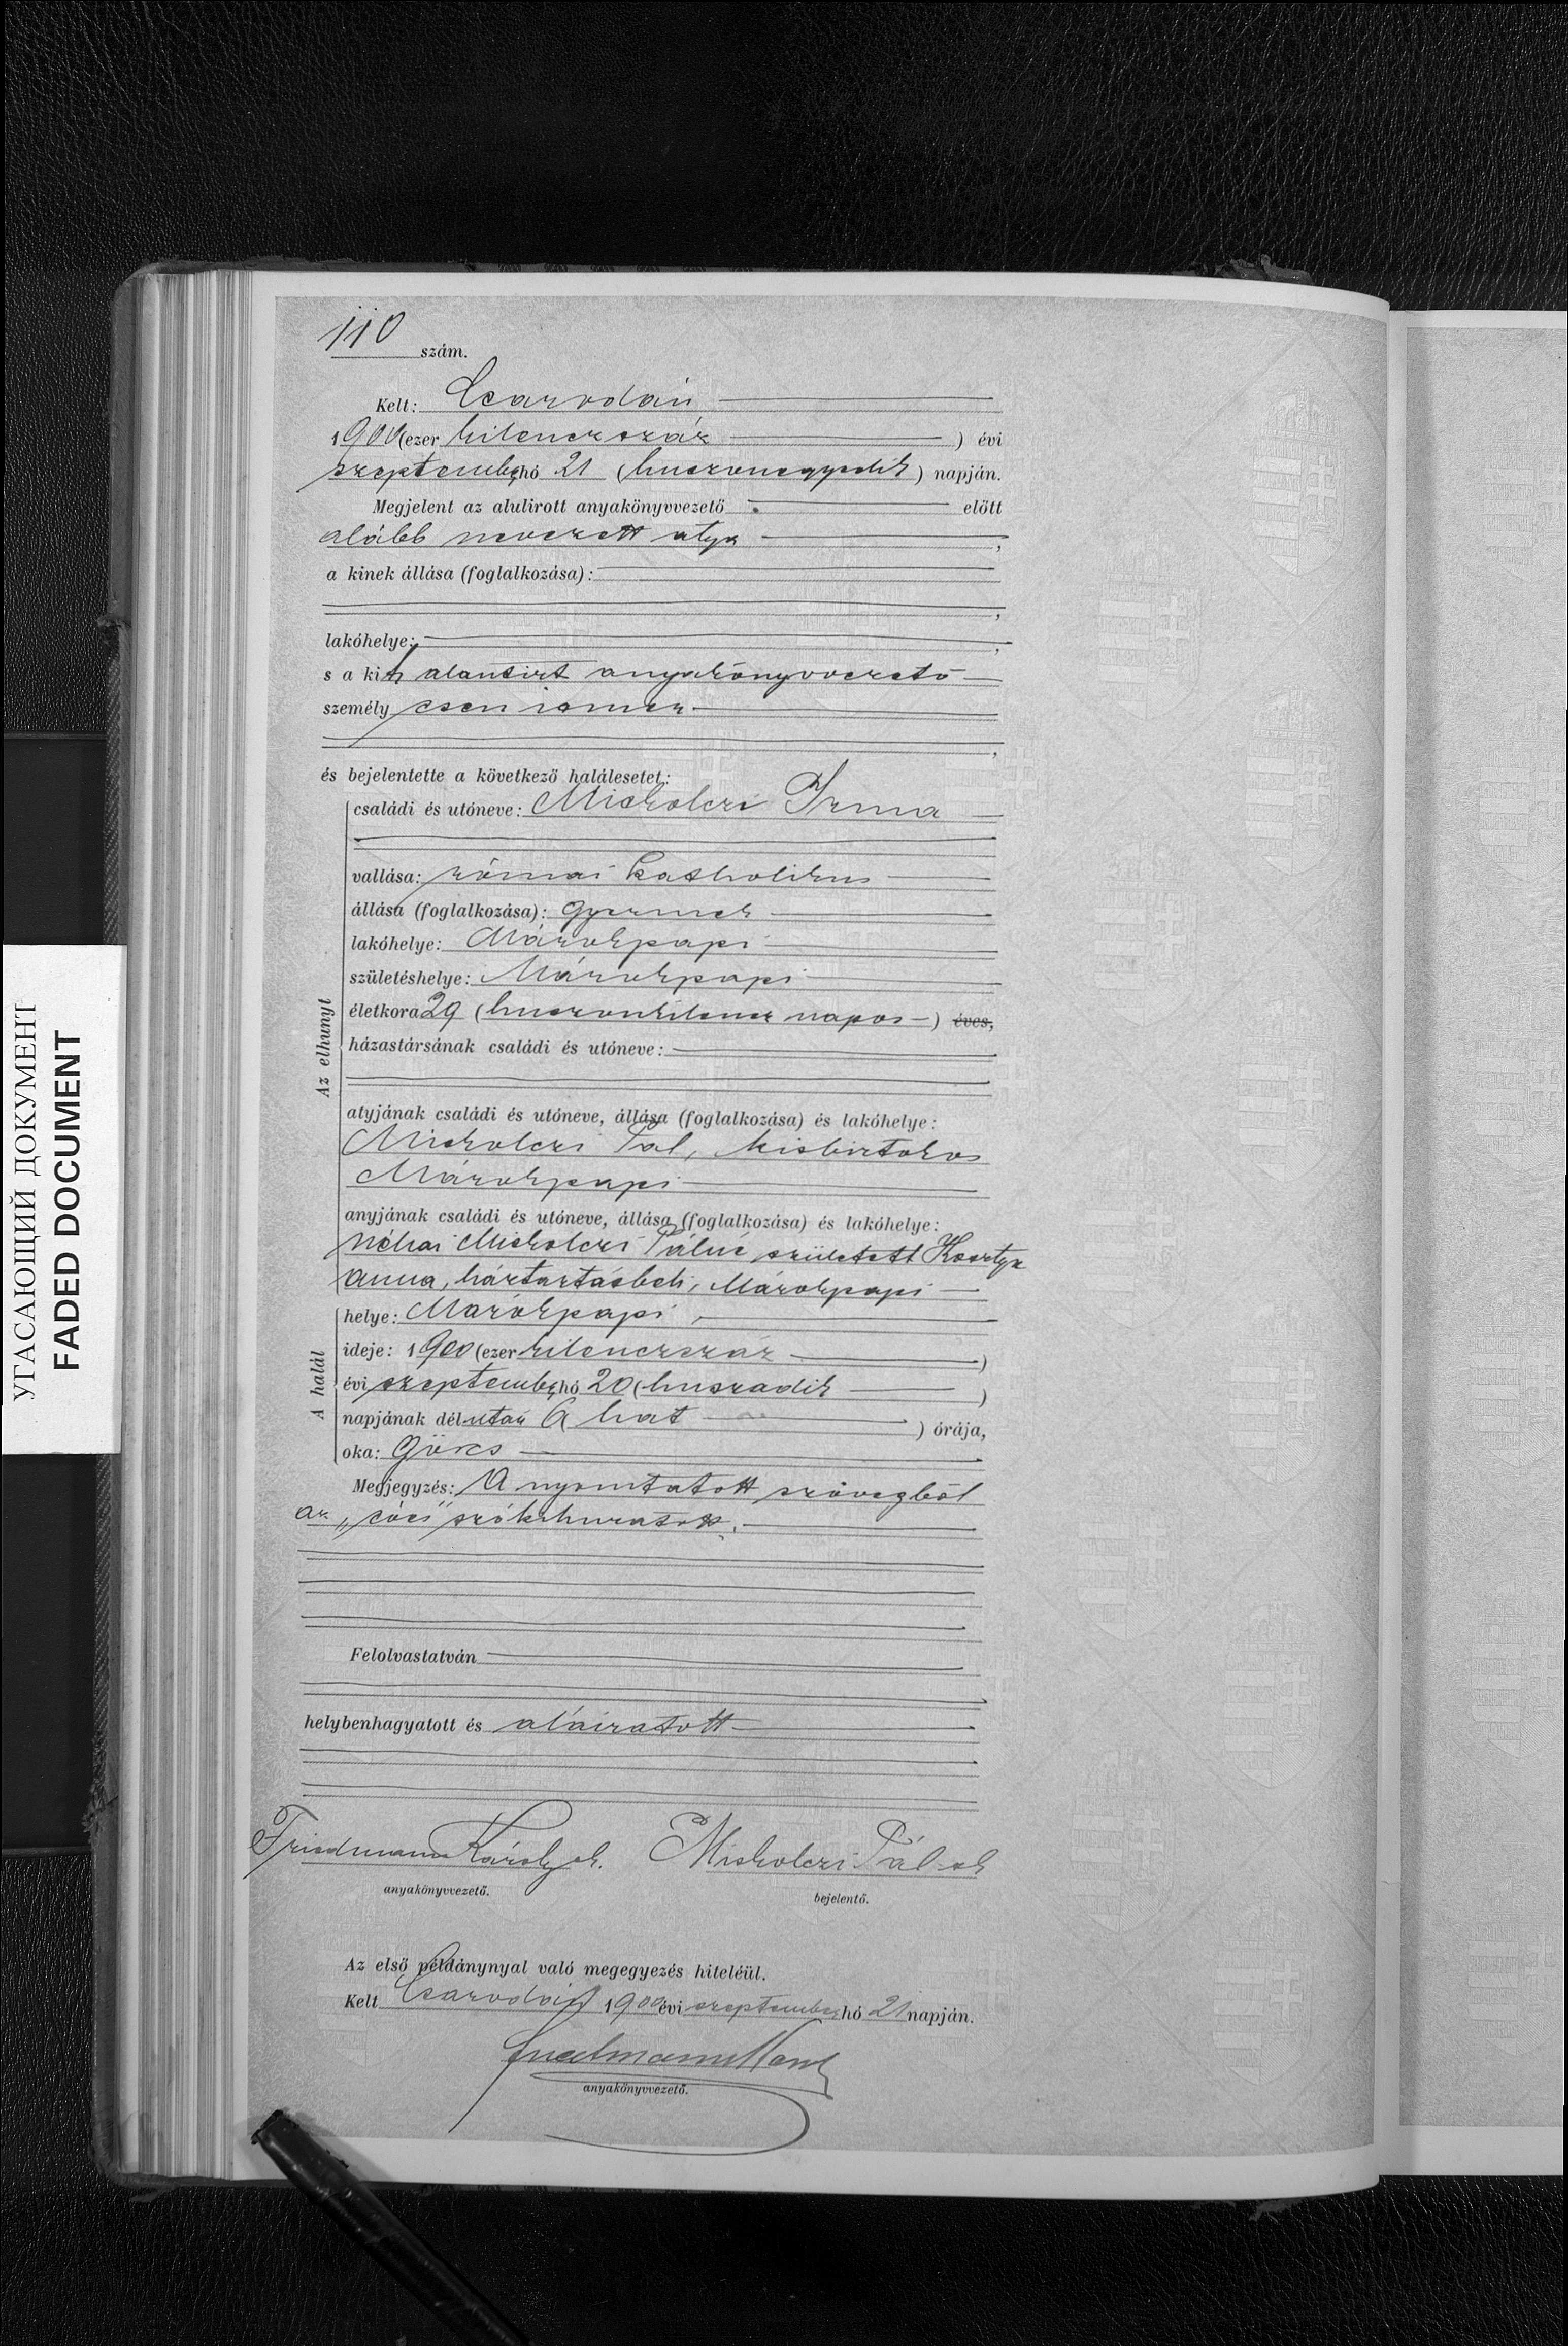 110 szám.
Kelt: Csarodán
1900 (ezer kilenczszáz ) évi
szeptember hó 21 (huszonegyedik) napján.
Megjelent az alulirott anyakönyvvezető előtt
alább nevezett atya ,
a kinek állása (foglalkozása):
,
lakóhelye: ,
s a kit alantirt anyakönyvvezető
személyesen ismer
,
és bejelentette a következő halálesetet:
Az elhunyt
családi és utóneve: Miskolczi Irma
vallása: római katholikus
állása (foglalkozása): gyermek
lakóhelye: Márokpapi
születéshelye: Márokpapi
életkora 29 (huszonkilencz napos) éves,
házastársának családi és utóneve:
atyjának családi és utóneve, állása (foglalkozása) és lakóhelye:
Miskolczi Pál, kisbirtokos
Márokpapi
anyjának családi és utóneve, állása (foglalkozása) és lakóhelye:
néhai Miskolczi Pálné született Kosztya
Anna, háztartásbeli, Márokpapi
A halál
helye: Marókpapi
ideje: 1900 (ezer kilenczszáz )
évi szeptember hó 20 (huszadik )
napjának délután 6 hat ) órája,
oka: Görcs
Megjegyzés: A nyomtatott szövegből
az „éves" szó kihuzatott.
Felolvastatván
helybenhagyatott és aláiratott
Friedmann Károly sk. Miskolczi Pál sk
anyakönyvvezető. bejelentő.
Az első példánynyal való megegyezés hiteléül.
Kelt Csarodán 1900 évi szeptember hó 21 napján.
anyakönyvvezető.
УГАСАЮЩИЙ ДОКУМЕНТ
FADED DOCUMENT